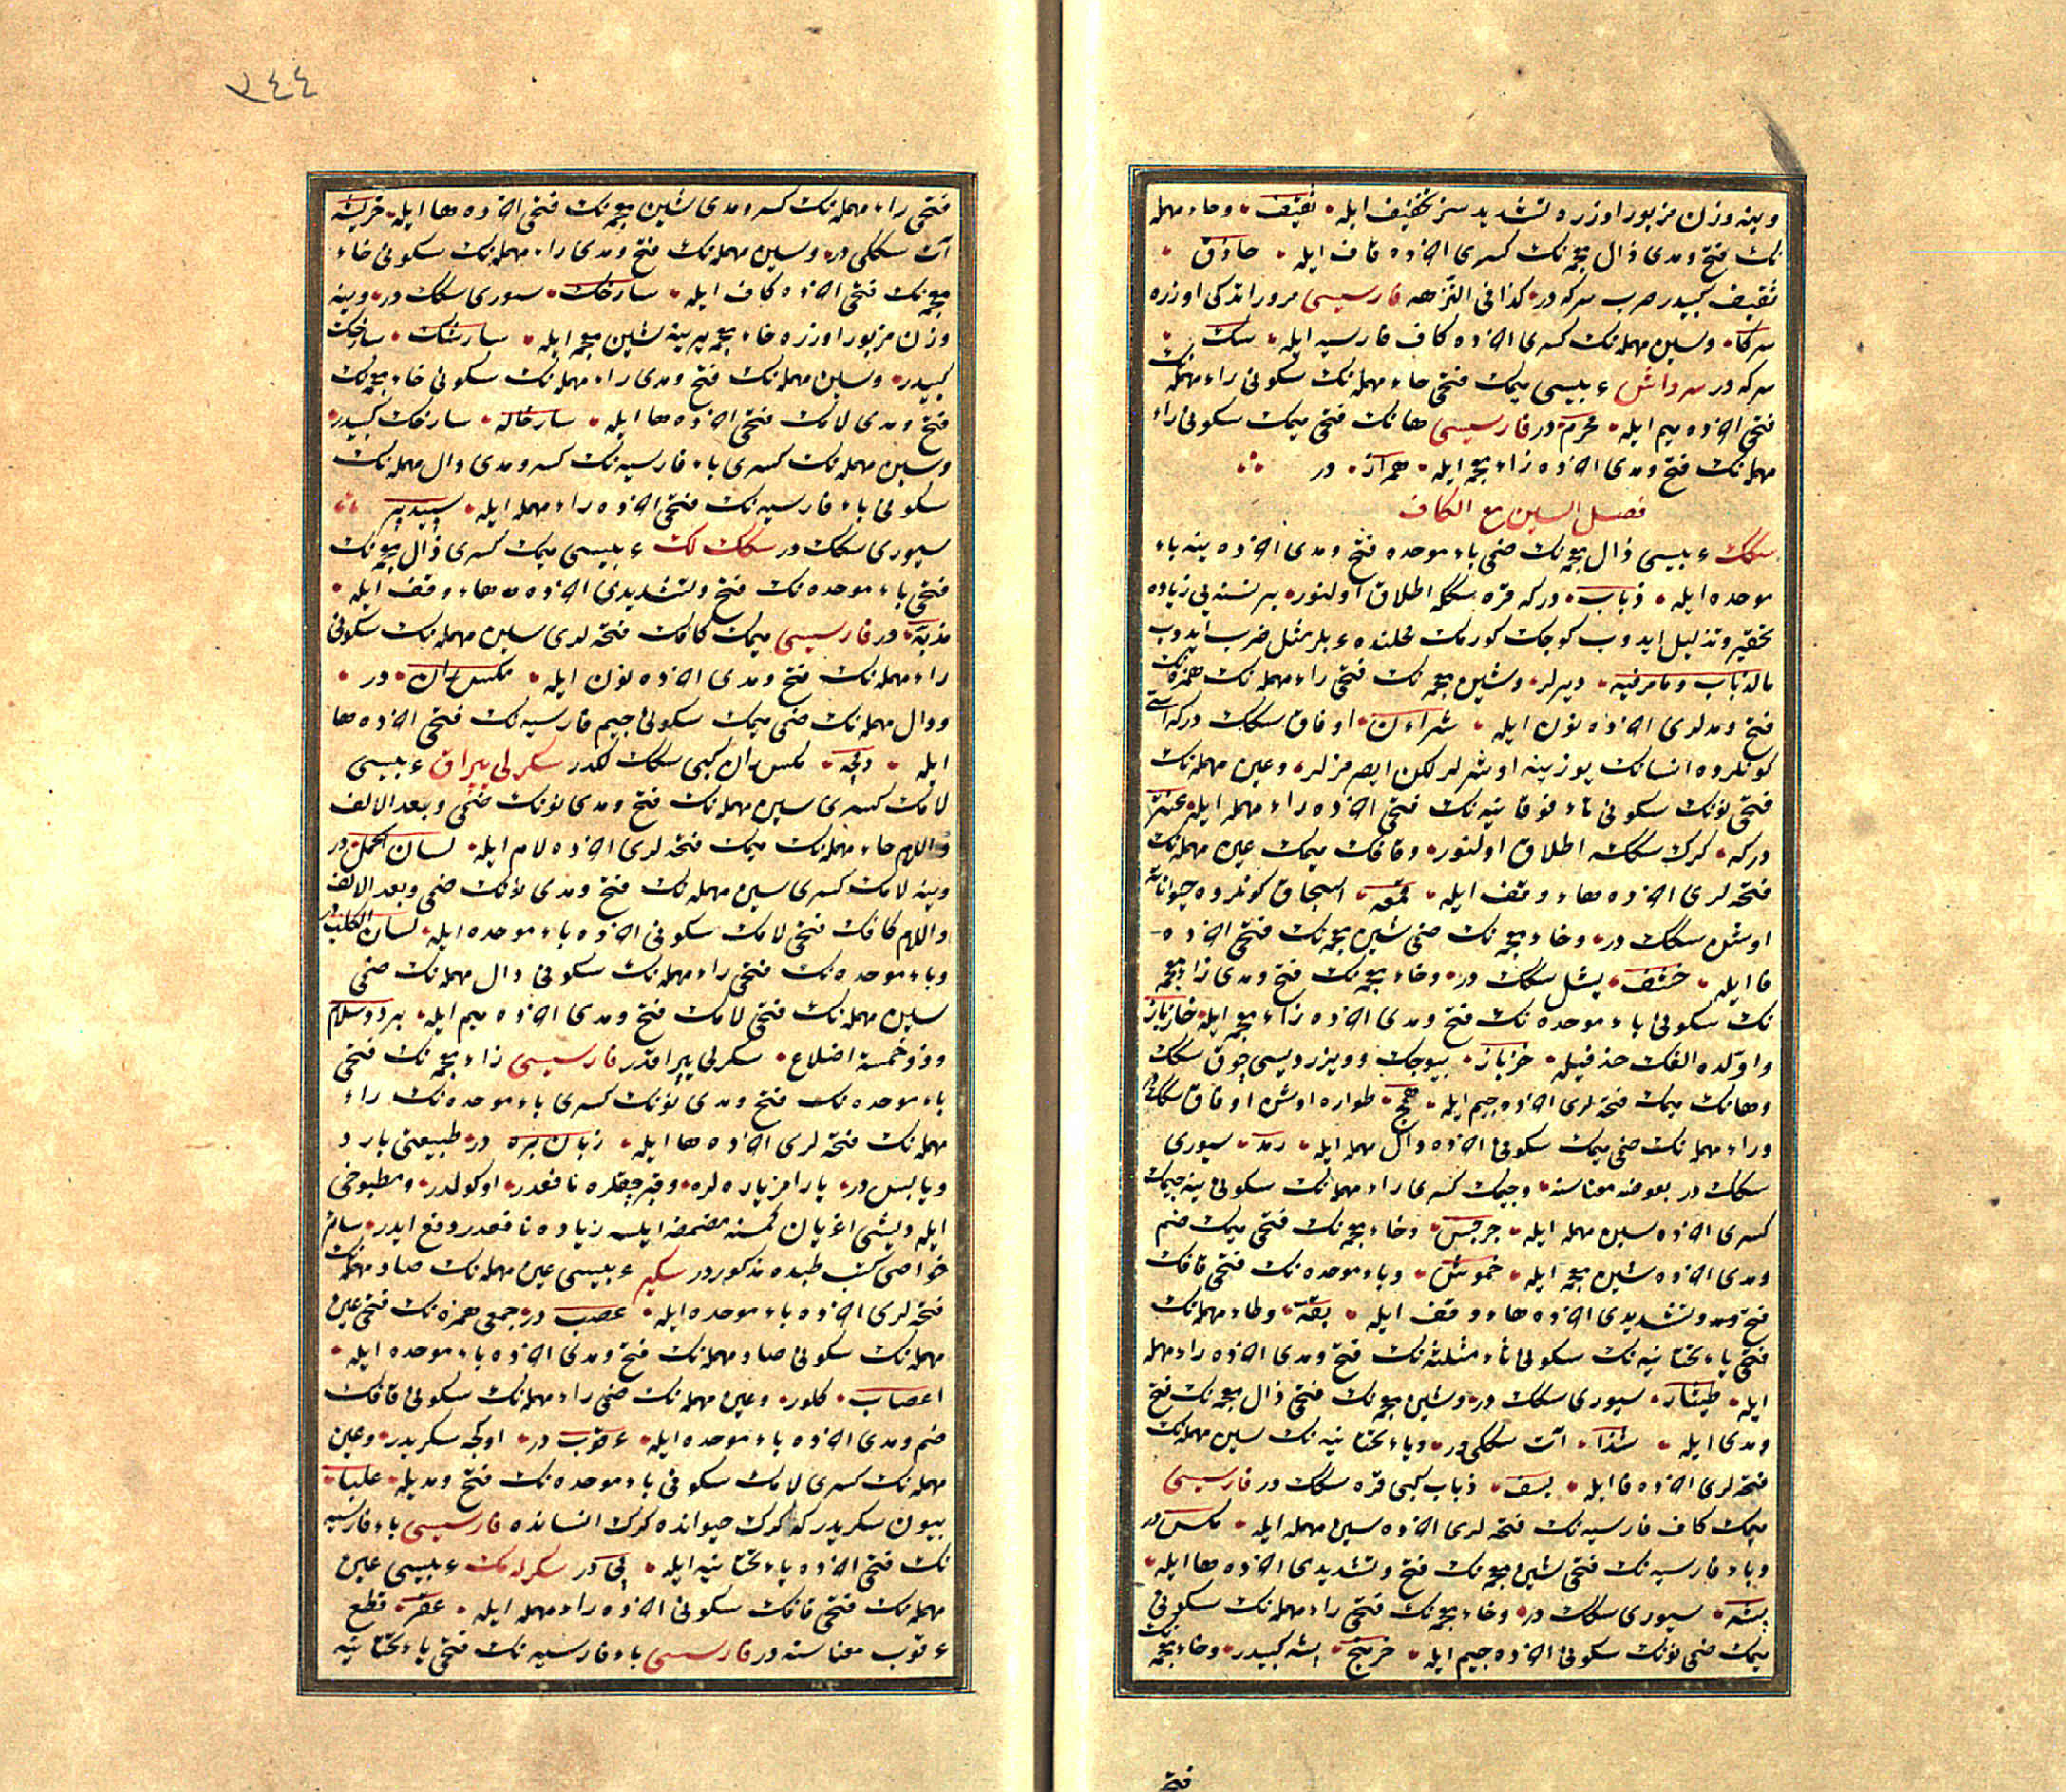 وینه وزن مزبور اوزره تشدیدسز تخفیف ایله ثقیف وحاء مهمله
نك فتح ومدی ذال معجمه نك کسری اخرده قاف ایله حاذق
ثقیف کبیدر صرب سرکه در کذا فی النزهه فارسیسی مرور اتدکی اوزره
سرکا وسین مهمله نك کسری اخرده کاف فارسیه ایله سك
سرکه در سرداش عربیسی میمك فتحی حاء مهمله نك سکونی راء مهمله نك
فتحی اخرده میم ایله محرم در فارسیسی هانك فتحی میمك سکونی راء
مهمله نك فتح ومدی اخرده زاء معجمه ایله همراز در
فصل السین مع الکاف
سكك عربیسی ذال معجمه نك ضمی باء موحده فتح ومدی اخرده ینه باء
موحده ایله ذباب در که قره سککه اطلاق اولنور بر نسنه یی زیاده
تحقیر وتذلیل ایدوب کوجك کورمك محلنده عربلر مثل ضرب ایدوب
مالذباب ومامرقته دیرلر وشین معجمه نك فتحی راء مهمله نك همزه نك
فتح ومدلری اخرده نون ایله شراءن اوفاق سكك در که اسی
کونلرده انسانك یوزینه اوشرلر لکن ایصرمزلر وعین مهمله نك
فتحی نونك سکونی تاء فوقانیه نك فتحی اخرده راء مهمله ایله عنتر
در که کوك سککه اطلاق اولنور وقافك میمك عین مهمله نك
فتحه لری اخرده هاء وقف ایله قمعه اسیجاق کونلرده حیواناته
اوشن سكك در وخاء معجمه نك ضمی شین معجمه نك فتحی اخرده
فا ایله خشف یشل سكك در وخاء معجمه نك فتح ومدی زاء معجمه
نك سکونی باء موحده نك فتح ومدی اخرده زاء معجمه ایله خازباز
واولده الفك حذفیله خزباز بیوجك وویزر دیسی چوق سكك
وهانك میمك فتحه لری اخرده جیم ایله همج طواره اوشن اوفاق سكك در
وراء مهمله نك ضمی میمك سکونی اخرده دال مهمله ایله رمد سیوری
سكك در بعوضه معناسنه وجیمك کسری راء مهمله نك سکونی ینه جیمك
کسری اخرده سین مهمله ایله جرجس وخاء معجمه نك فتحی میمك ضم
ومدی اخرده شین معجمه ایله خموش وباء موحده نك فتحی قافك
فتح وتشدیدی اخرده هاء وقف ایله بقه وطاء مهمله نك
فتحی یاء تحتانیه نك سکونی ثاء مثلثه نك فتح ومدی اخرده راء مهمله
ایله طیثار سیوری سكك در وشین معجمه نك فتحی ذال معجمه نك فتح
ومدی ایله شذا آت سککی در ویاء تحتانیه نك سین مهمله نك
فتحه لری اخرده فا ایله یسف ذباب کبی قره سكك در فارسیسی
میمك کاف فارسیه نك فتحه لری اخرده سین مهمله ایله مکس در
وباء فارسیه نك فتحی شین معجمه نك فتح وتشدیدی اخرده ها ایله
پشه سیوری سكك در وخاء معجمه نك فتحی راء مهمله نك سکونی
میمك ضمی نونك سکونی اخرده جیم ایله خرمنج پشه کبیدر وخاء معجمه نك
فتح
٣٤٤
فتحی راء مهمله نك کسر ومدی شین معجمه نك فتحی اخرده ها ایله خریشه
آت سککی در وسین مهمله نك فتح ومدی راء مهمله نك سکونی خاء
معجمه نك فتحی اخرده کاف ایله سارخك سوری سكك در وینه
وزن مزبور اوزره خاء معجمه یرینه شین معجمه ایله سارشك سارخك
کبیدر وسین مهمله نك فتح ومدی راء مهمله نك سکونی خاء معجمه نك
فتح ومدی لامك فتحی اخرده ها ایله سارخاله سارخك کبیدر
وسین مهمله نك کسری باء فارسیه نك کسر ومدی دال مهمله نك
سکونی باء فارسیه نك فتحی اخرده راء مهمله ایله سپیدپر
سیوری سكك در سكك لك عربیسی میمك کسری ذال معجمه نك
فتحی باء موحده نك فتح وتشدیدی اخرده هاء وقف ایله
مذبه در فارسیسی میمك کافك فتحه لری سین مهمله نك سکونی
راء مهمله نك فتح ومدی اخرده نون ایله مکس ران در
ودال مهمله نك ضمی میمك سکونی جیم فارسیه نك فتحی اخرده ها
ایله دمچه مکس ران کبی سكك لکدر سکرلی یپراق عربیسی
لامك کسری سین مهمله نك فتح ومدی نونك ضمی وبعد الالف
واللام حاء مهمله نك میمك فتحه لری اخرده لام ایله لسان الحمل در
وینه لامك کسری سین مهمله نك فتح ومدی نونك ضمی وبعد الالف
واللام کافك فتحی لامك سکونی اخرده باء موحده ایله لسان الکلب در
وباء موحده نك فتحی راء مهمله نك سکونی دال مهمله نك ضمی
سین مهمله نك فتحی لامك فتح ومدی اخرده میم ایله برد وسلام
وذو خمسة اضلاع سکرلی یپراقدر فارسیسی زاء معجمه نك فتحی
باء موحده نك فتح ومدی نونك کسری باء موحده نك راء
مهمله نك فتحه لری اخرده ها ایله زبان بره در طبیعتی بارد
ویابس در یارامز یاره لره وقبرجقلره نافعدر اوکولدر ومطبوخی
ایله دیشی اغریان کمسنه مضمضه ایلسه زیاده نافعدر دفع ایدر سائر
خواصی کتب طبده مذکوردر سکیر عربیسی عین مهمله نك صاد مهمله نك
فتحه لری اخرده باء موحده ایله عصب در جمعی همزه نك فتحی عین
مهمله نك سکونی صاد مهمله نك فتح ومدی اخرده باء موحده ایله
اعصاب کلور وعین مهمله نك ضمی راء مهمله نك سکونی قافك
ضم ومدی اخرده باء موحده ایله عرقوب در اوکچه سکریدر وعین
مهمله نك کسری لامك سکونی باء موحده نك فتح ومدیله علباء
بیون سکریدر که کرك حیوانده کرك انسانده فارسیسی باء فارسیه
نك فتحی اخرده یاء تحتانیه ایله پی در سکرلمك عربیسی عین
مهمله نك فتحی قافك سکونی اخرده راء مهمله ایله عقر قطع
عرقوب معناسنه در فارسیسی باء فارسیه نك فتحی یاء تحتانیه